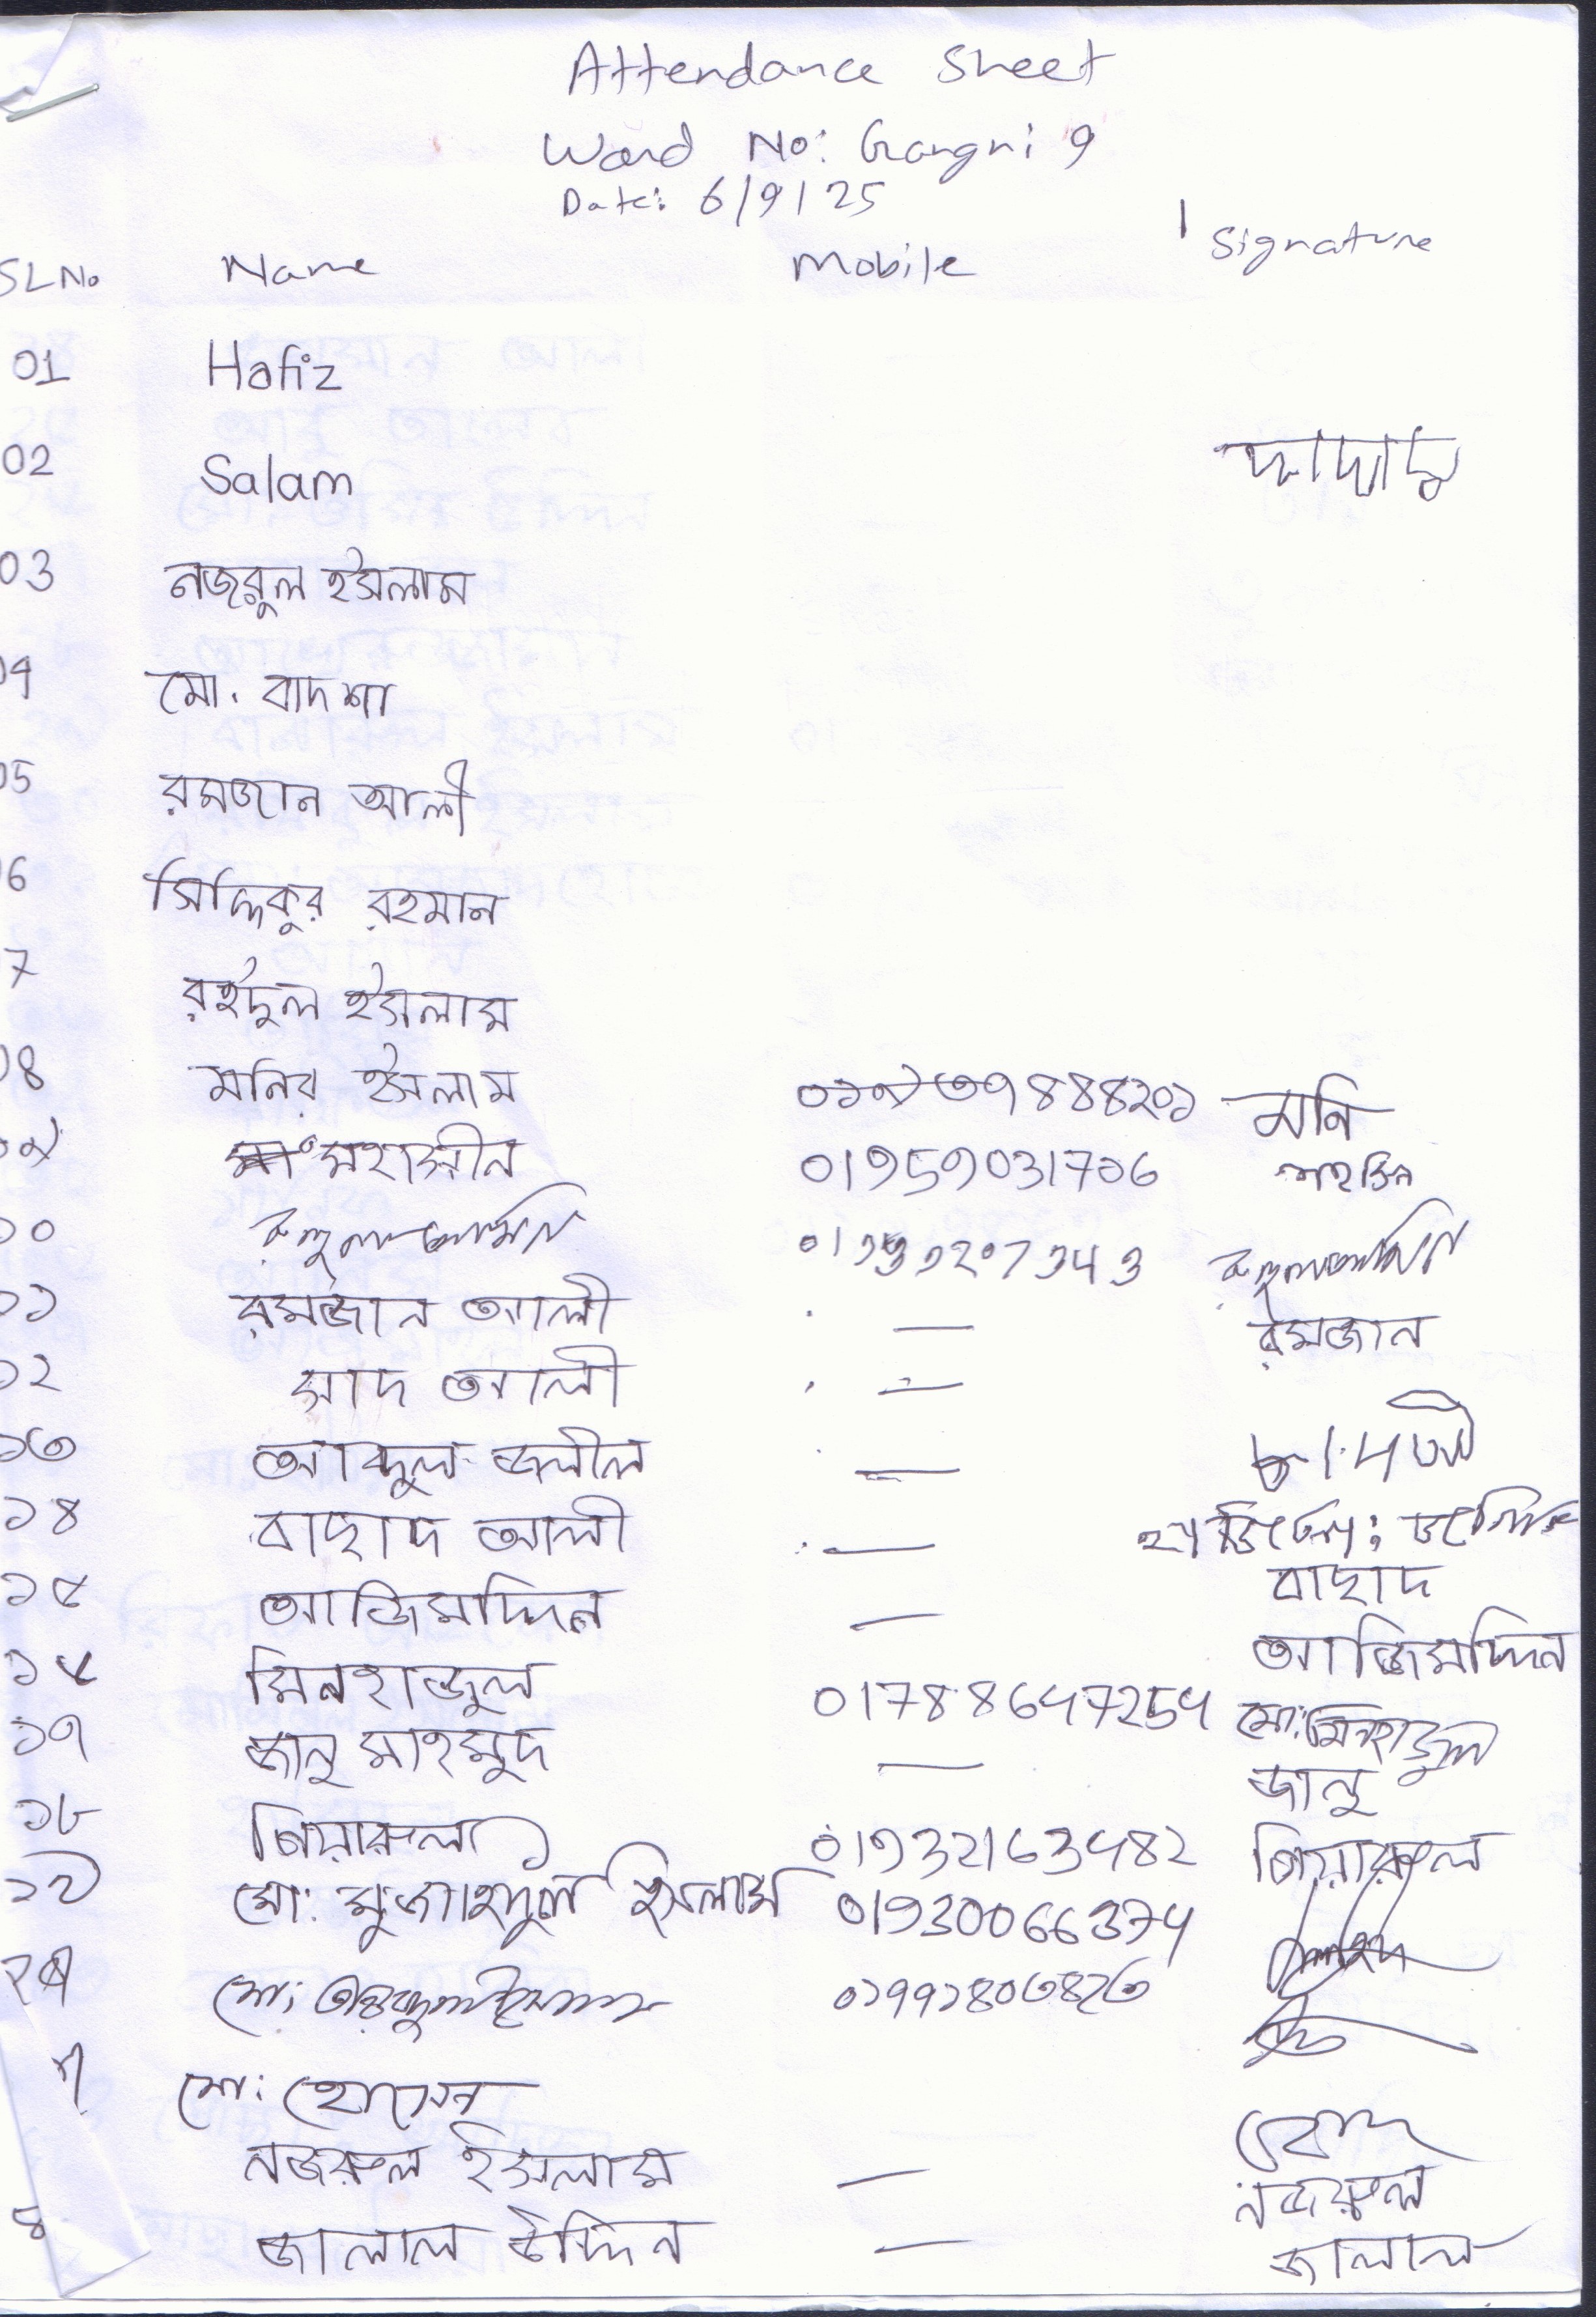 Attendance Sheet
Ward No: Gangni 9
Date: 6/9/25
SL No Name Mobile Signature
01 Hafiz
02 Salam
03 নজরুল ইসলাম
04 মো. বাদশা
05 রমজান আলী
06 সিদ্দিকুর রহমান
7 রইদুল ইসলাম
08 মনির ইসলাম ০১৯৩৭৪৪৪২০১ মনি
০৯ মহাসীন 01959031706
১০ রুহুল আমিন রুহুল আমিন
১১ রমজান আলী — রমজান
১২ সাদ আলী —
১৩ আব্দুল জলীল —
১৪ বাছাদ আলী — বাছাদ
১৫ আজিমদ্দিন — আজিমদ্দিন
১৬ মিনহাজুল 01788647254 মো: মিনহাজুল
১৭ জানু মাহমুদ — জানু
১৮ জিয়ারুল 01932163482 জিয়ারুল
১৯ মো: মুজাহিদুল ইসলাম 01930066374
মো: ০১৭৭১৪০৩৪২৩
মো: হোসেন
নজরুল ইসলাম — নজরুল
জালাল উদ্দিন — জালাল